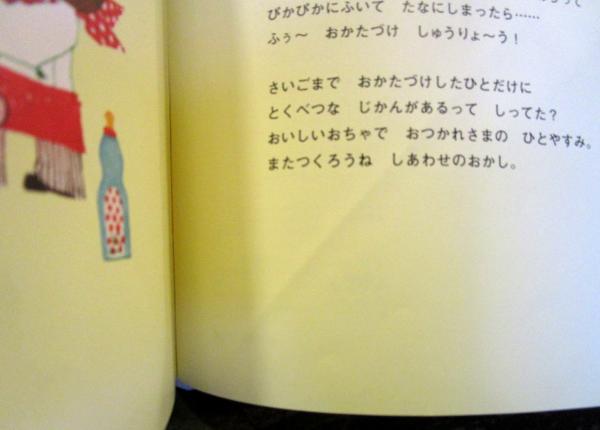 ぴかぴかにふいて　たなにしまったら……
ふぅ〜　おかたづけ　しゅうりょ〜う！
さいごまで　おかたづけしたひとだけに
とくべつな　じかんがあるって　しってた？
おいしいおちゃで　おつかれさまの　ひとやすみ。
またつくろうね　しあわせのおかし。